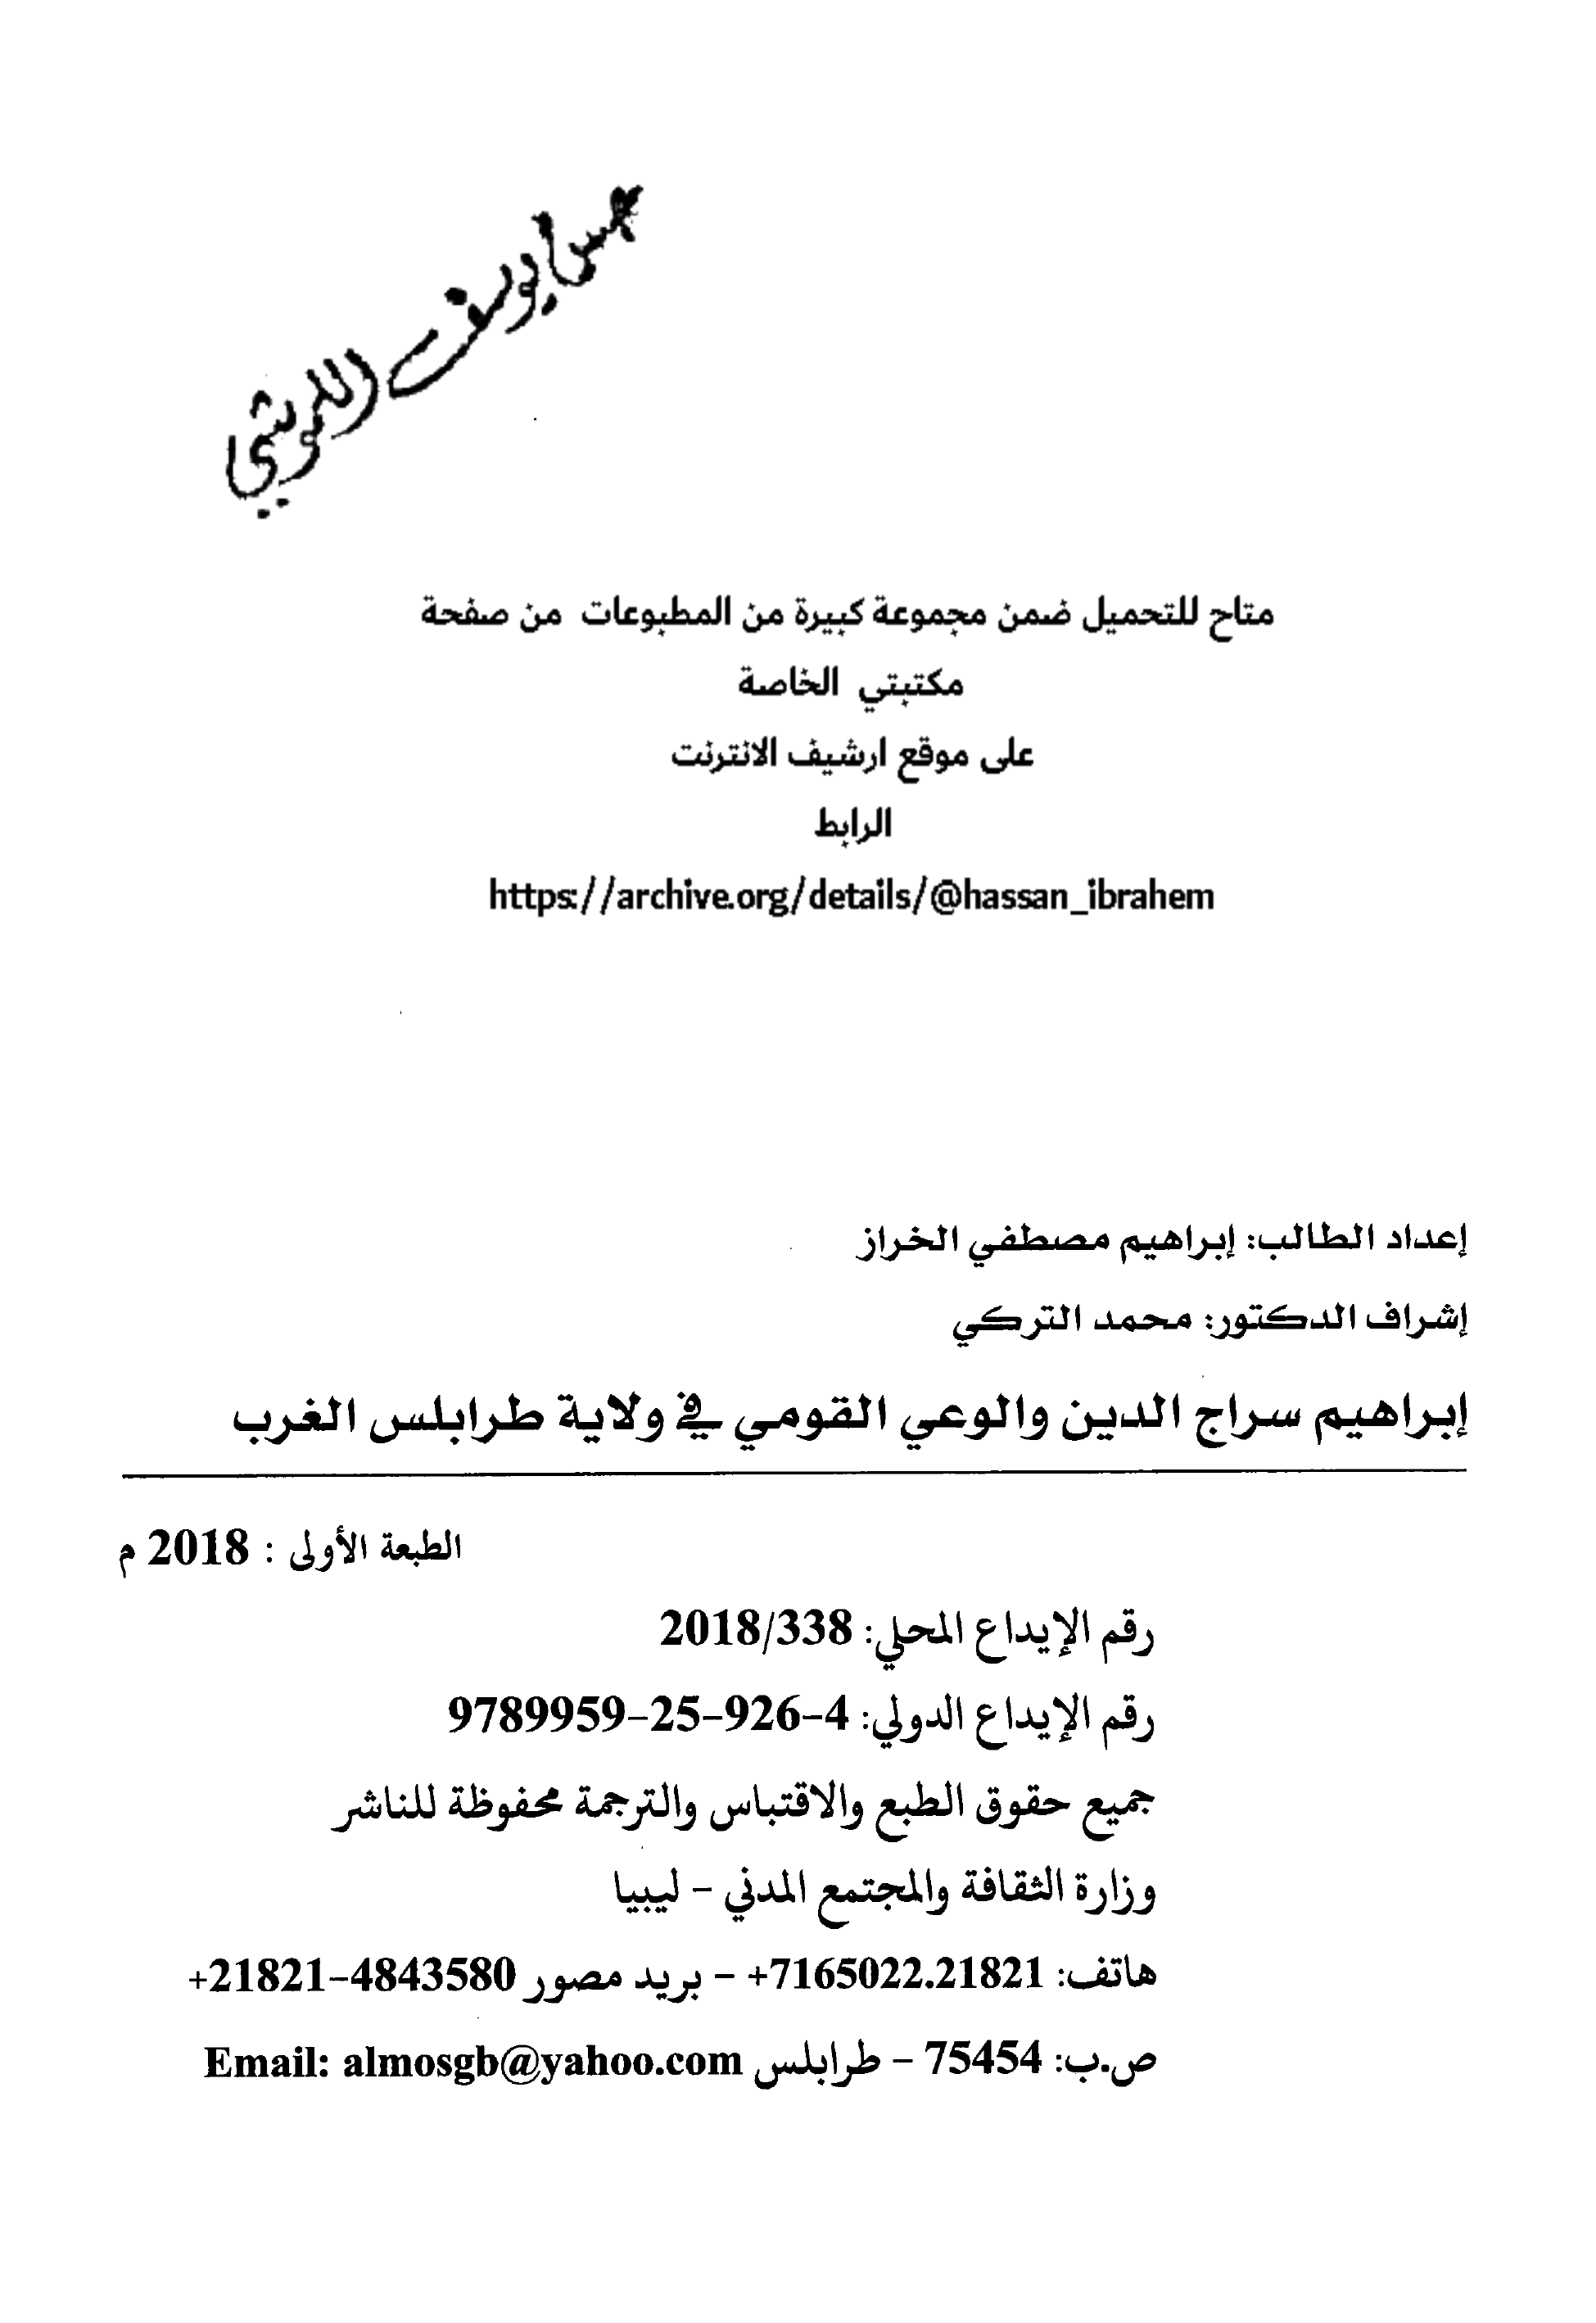 متاح للتحميل ضمن مجموعة كبيرة من المطبوعات من صفحة
مكتبتي الخاصة
على موقع ارشيف الانترنت
الرابط
https://archive.org/details/@hassan_ibrahem
إعداد الطالب: إبراهيم مصطفي الخراز
إشراف الدكتور: محمد التركي
إبراهيم سراج الدين والوعي القومي في ولاية طرابلس الغرب
الطبعة الأولى : 2018 م
رقم الإيداع المحلي: 2018/338
رقم الإيداع الدولي: 4-926-25-9789959
جميع حقوق الطبع والاقتباس والترجمة محفوظة للناشر
وزارة الثقافة والمجتمع المدني - ليبيا
هاتف: 7165022.21821+ - بريد مصور 4843580-21821+
ص.ب: 75454 - طرابلس Email: almosgb@yahoo.com